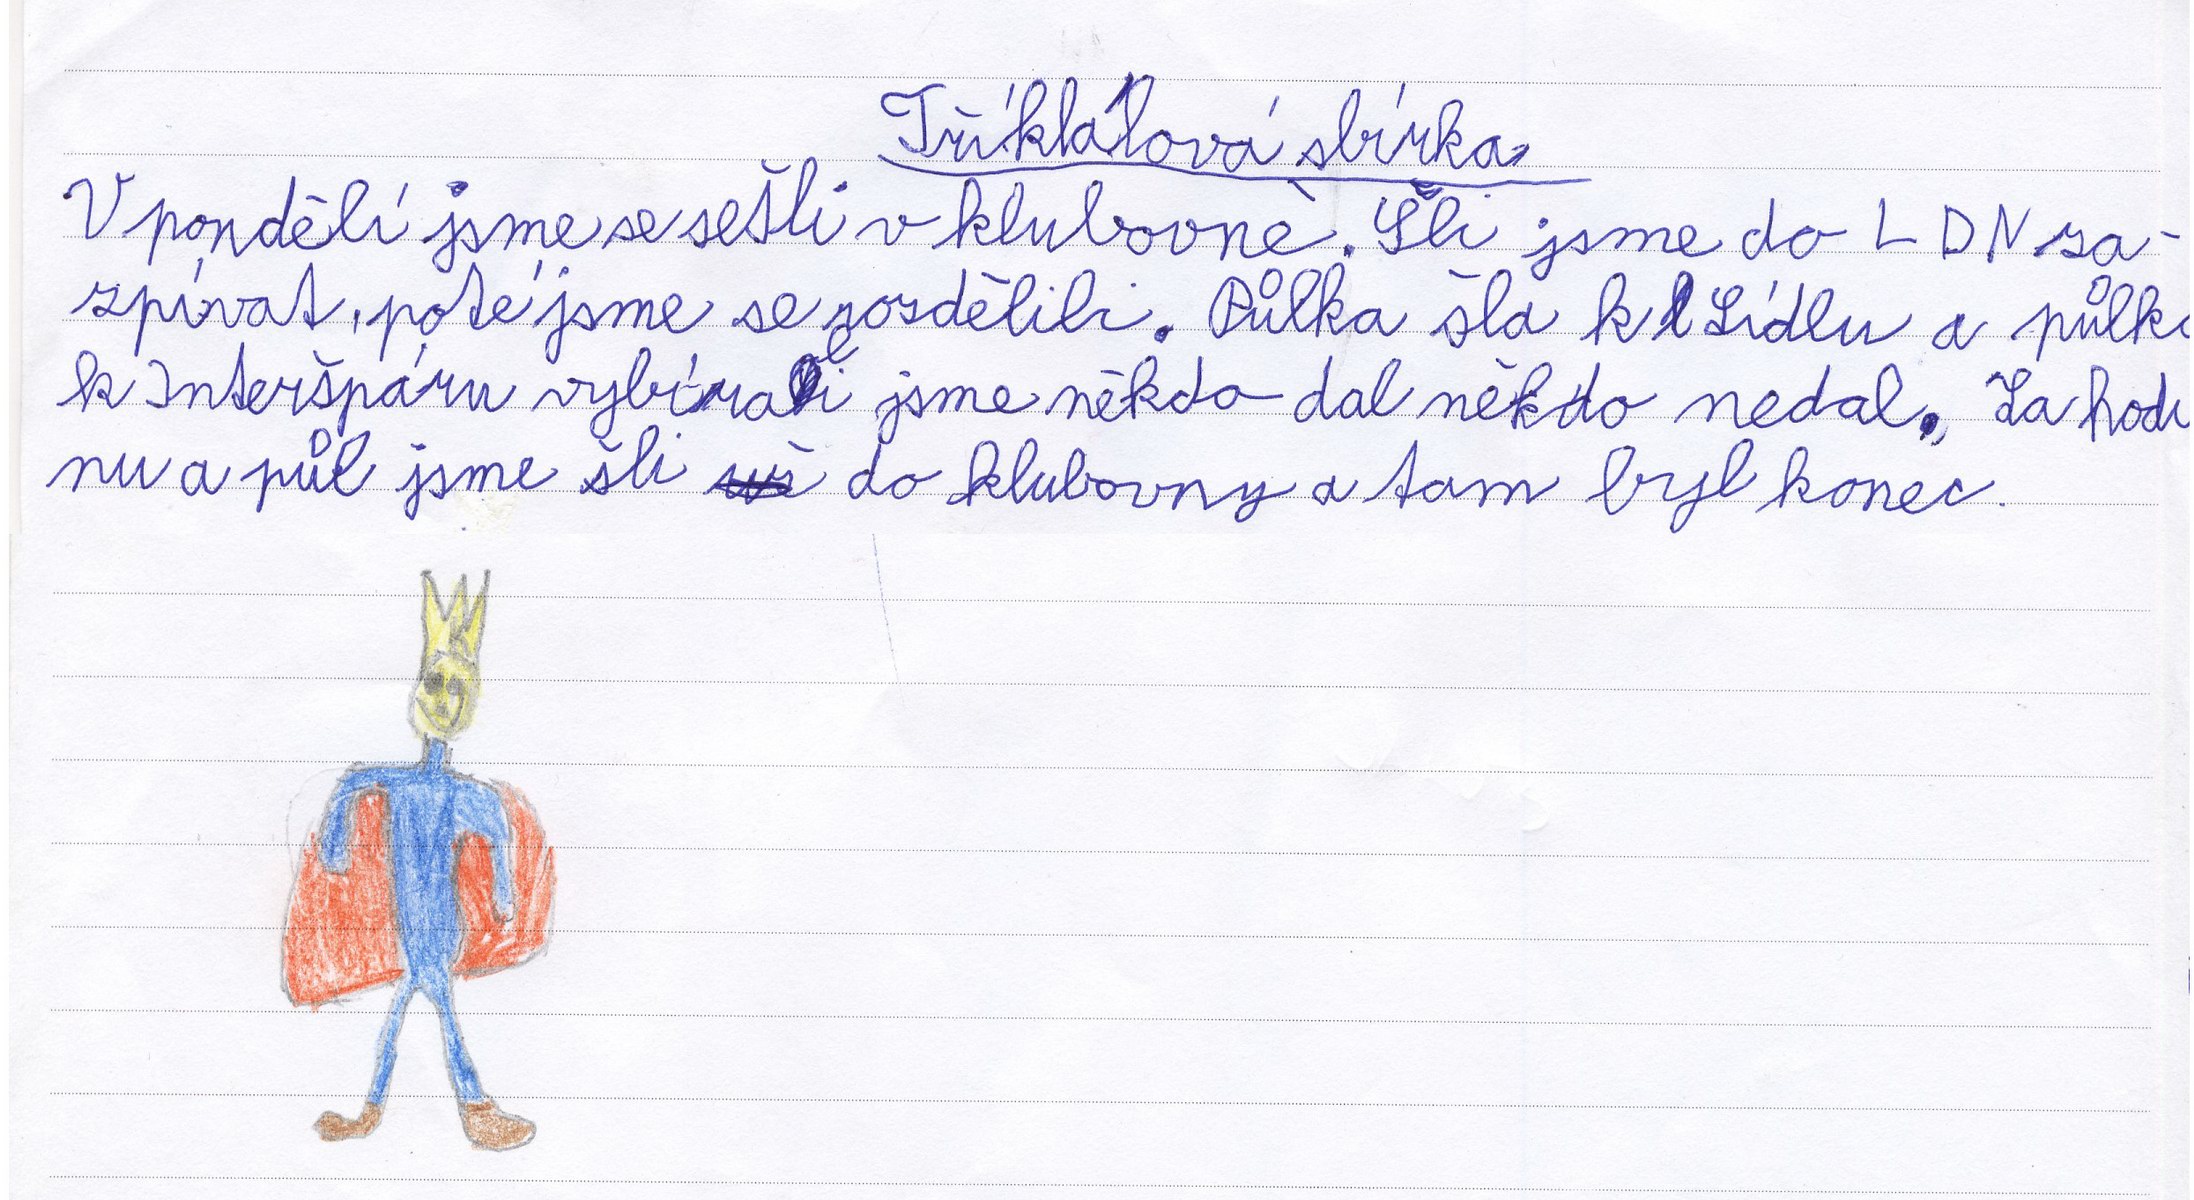 Tříkálová sbírka
V pondělí jsme se sešli v klubovně. Šli jsme do LDN za-
zpívat, poté jsme se rozdělili. Půlka šla k Lídlu a půlka
k Interšpáru vybírali jsme někdo dal někdo nedal. Za hodi
nu a půl jsme šli do klubovny a tam byl konec.